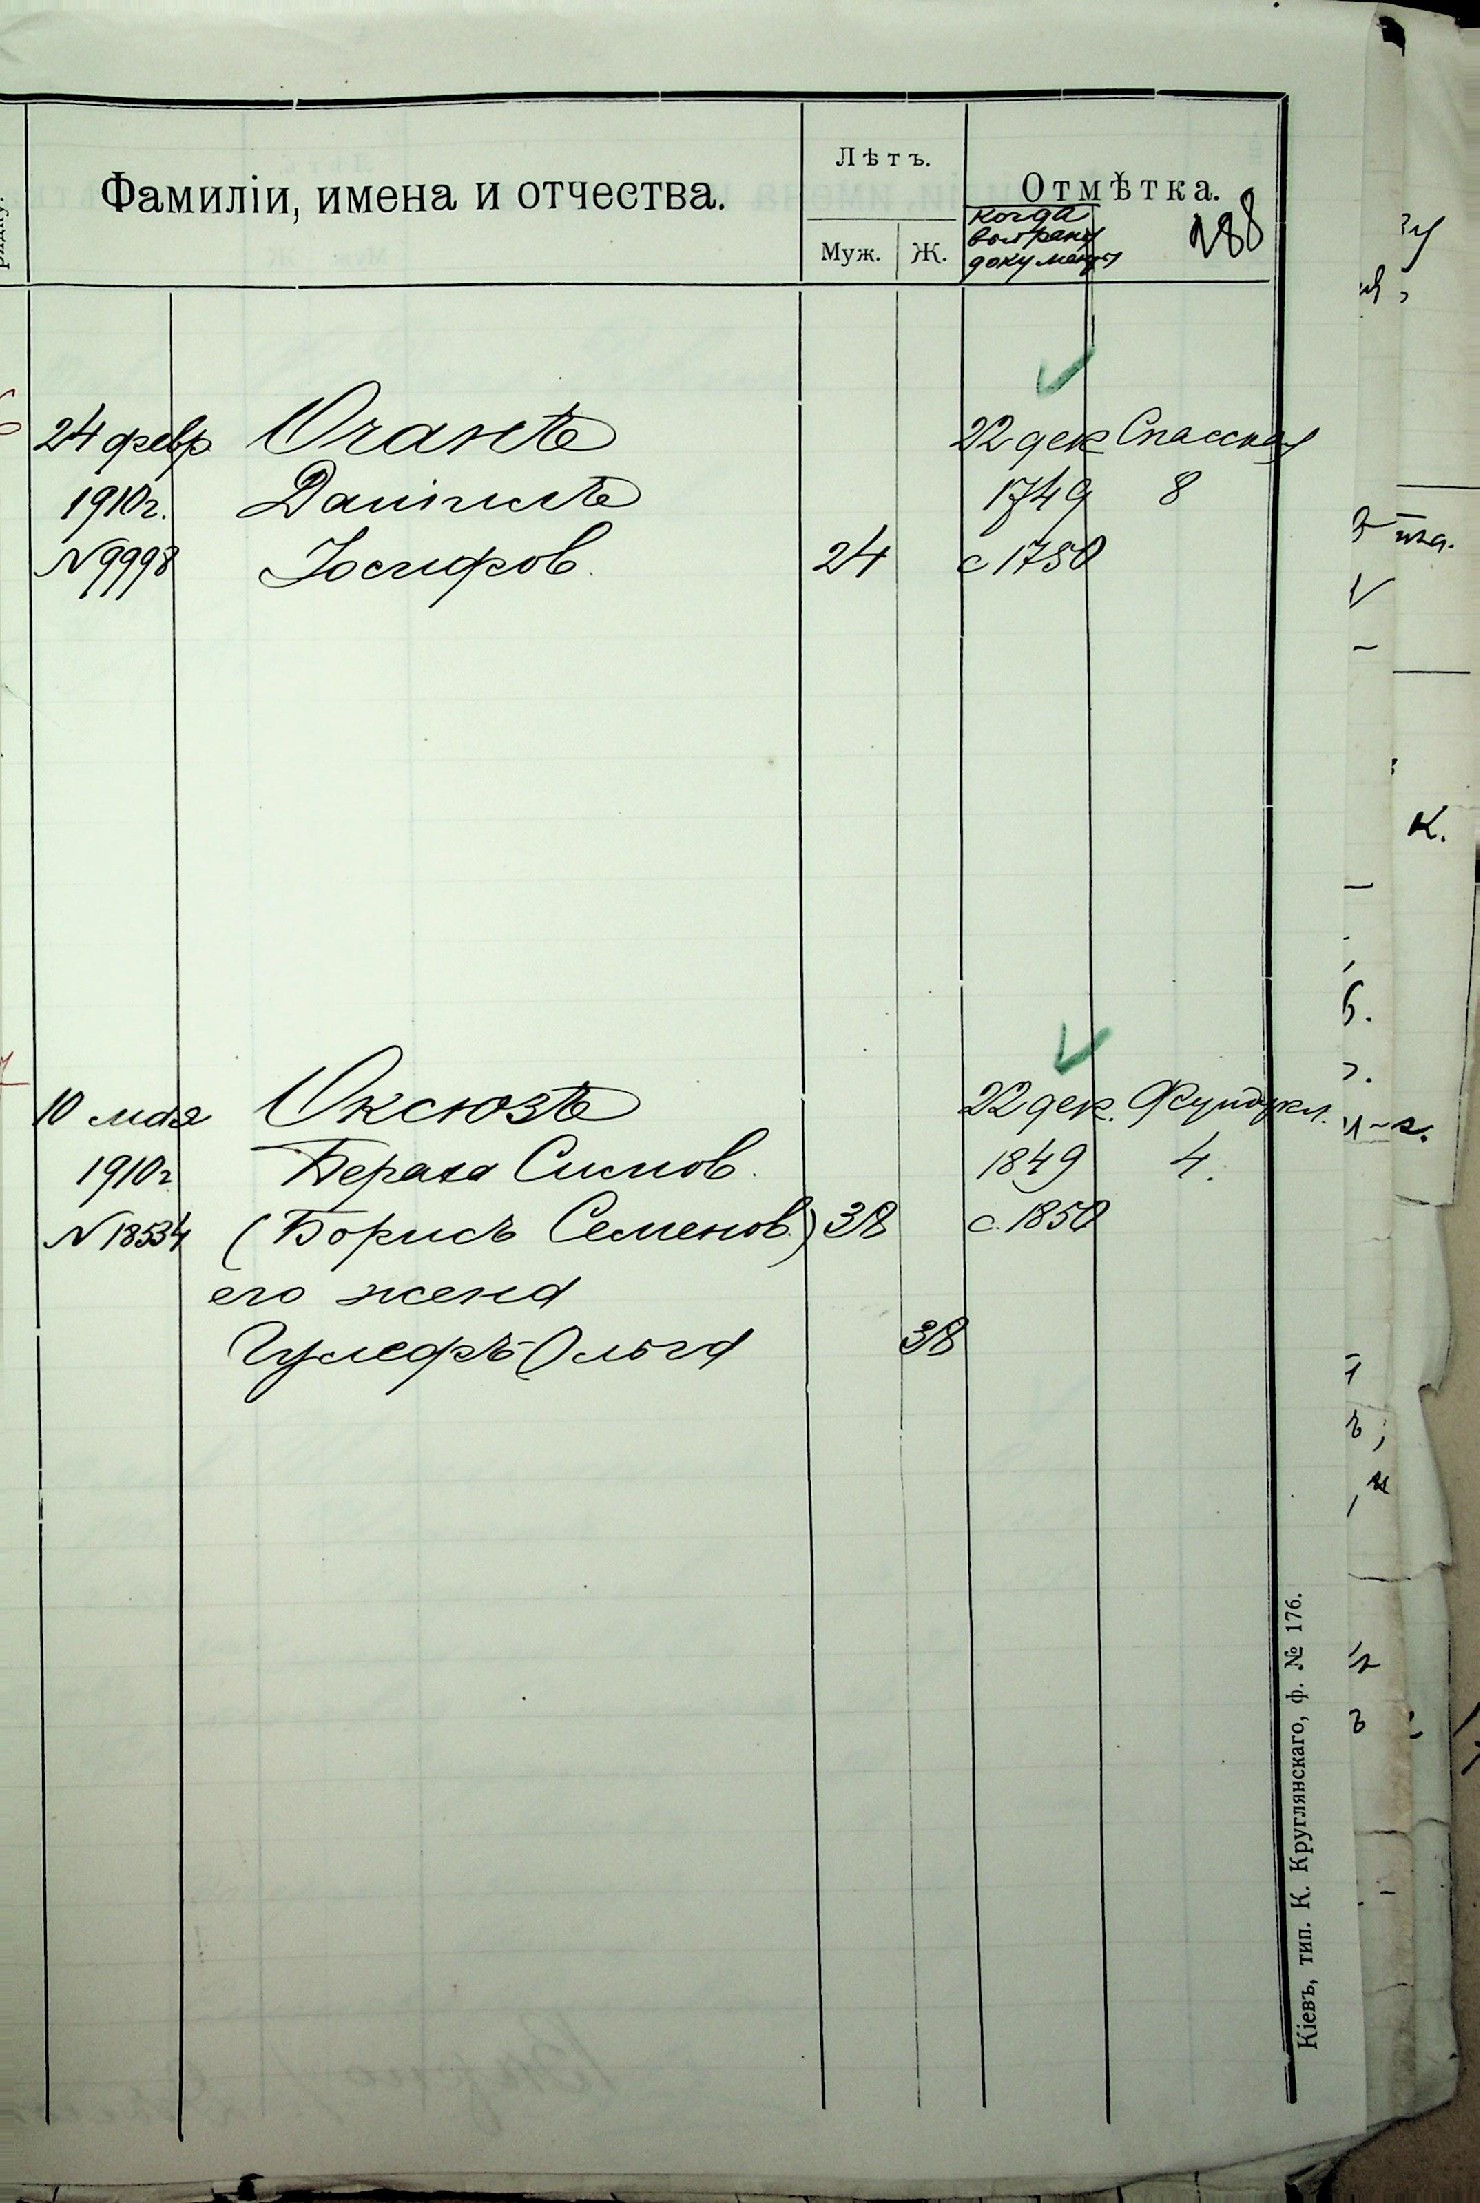 Фамиліи, имена и отчества.
Лѣтъ.
Муж. Ж.
Отмѣтка.
когда
выбраны
документы
188
24 февр Оганъ 22 дек Спасская
1910г. Даніилъ 1749 8
№9998 Іосифов. 24 с 1750
10 мая Оксюзъ 22 дек. Фундукл.
1910г Симов. 1849 4.
№18534 (Борисъ Семенов.) 38 с. 1850
его жена
Ольга 38
Кіевъ, тип. К. Круглянскаго, ф. № 176.